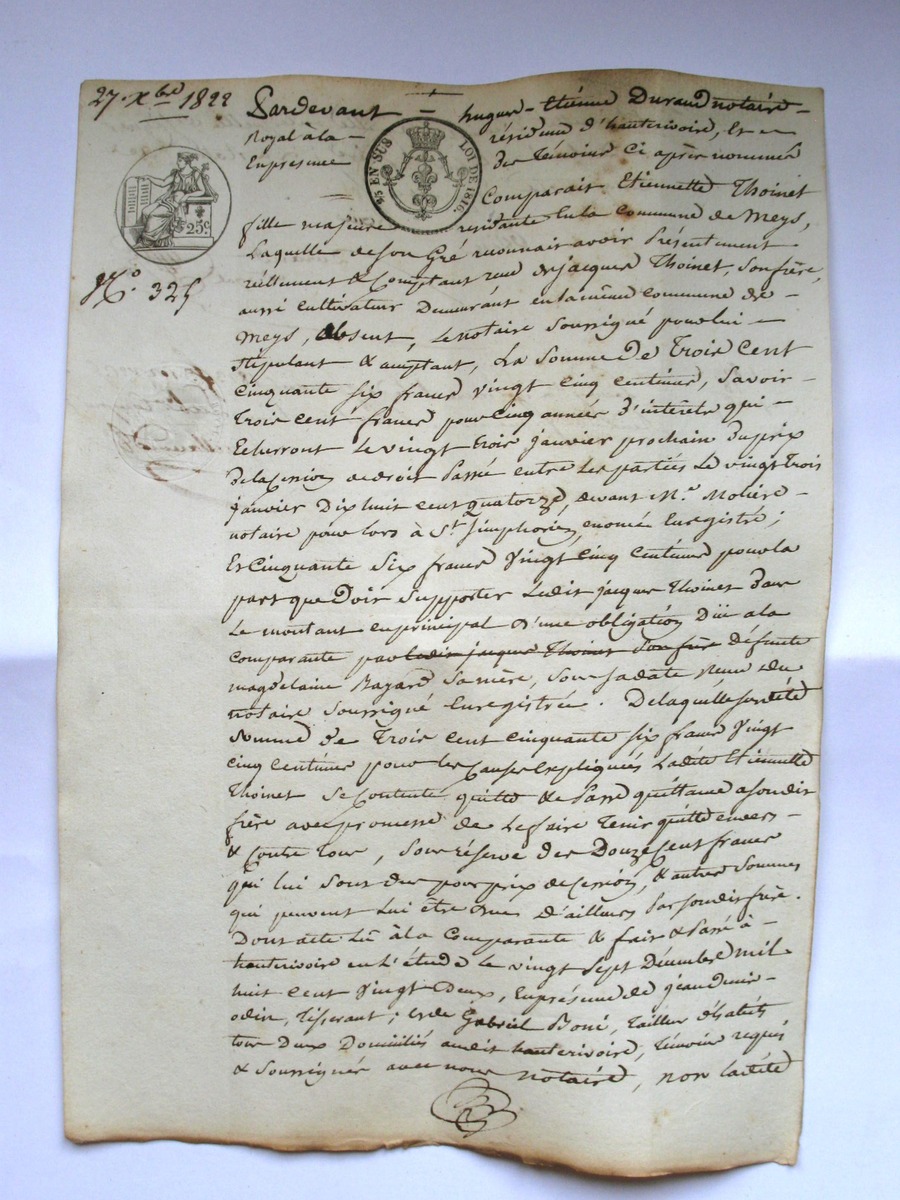 27. xbre 1822
Pardevant hugue-Etiénne Durand notaire
Royal à la résidence d'hauterivoire, Et
En présence des témoins Ci après nommés
25 EN SUS LOI DE 1816.
25c
Comparait Etiennette Thoinet
fille majeure résidante En la Commune de Meys,
Laquelle de son Gré reconnait avoir Présentement
réellement & Comptant reçu de jacques Thoinet, son frère,
No. 325
aussi cultivateur Demeurant en la même commune de
Meys, absent, le notaire soussigné pour lui
stipulant & acceptant, La Somme De Trois Cent
Cinquante six francs vingt cinq centimes, savoir
Trois cent francs pour Cinq années d'intérets qui
Echerront Le vingt trois janvier prochain Du prix
De la Cession de droit Passé entre Les parties Le vingt Trois
janvier Dix huit cent quatorze, devant Me. Molière
notaire pour lors à St. Simphorien, Enregistré;
Et Cinquante Six francs Vingt Cinq Centimes pour la
part que Doit Supporter Ledit jacques Thoinet Dans
Le montant en principal d'une obligation Dûe a la
Comparante par ledit jacques Thoinet son frère Défunte
magdelaine Bayard sa mère, sous sa date reçue du
notaire soussigné Enregistrée. De laquelle susdite
Somme De Trois Cent Cinquante six francs Vingt
Cinq Centimes pour les Causes Expliquées Ladite Etiennette
Thoinet se Contente quitte & Passe quittance a son dit
frère avec promesse de Le faire Tenir quitte envers
& Contre Tous, sous réserve des Douze Cent francs
qui lui sont dus pour prix de Cession, & autres sommes
qui peuvent Lui être dues d'ailleurs Par son dit frère.
Dont acte Lû à la Comparante & fait & Passé à
hauterivoire en L'étude Le vingt sept Décembre mil
huit cent Vingt Deux, En présence de jean Denis
odin, Tisserant; et de Gabriel Boni, Tailleur d'habits
tous Deux Domiciliés audit hauterivoire, Témoins requis
& Soussignés avec nous notaire, non Ladite